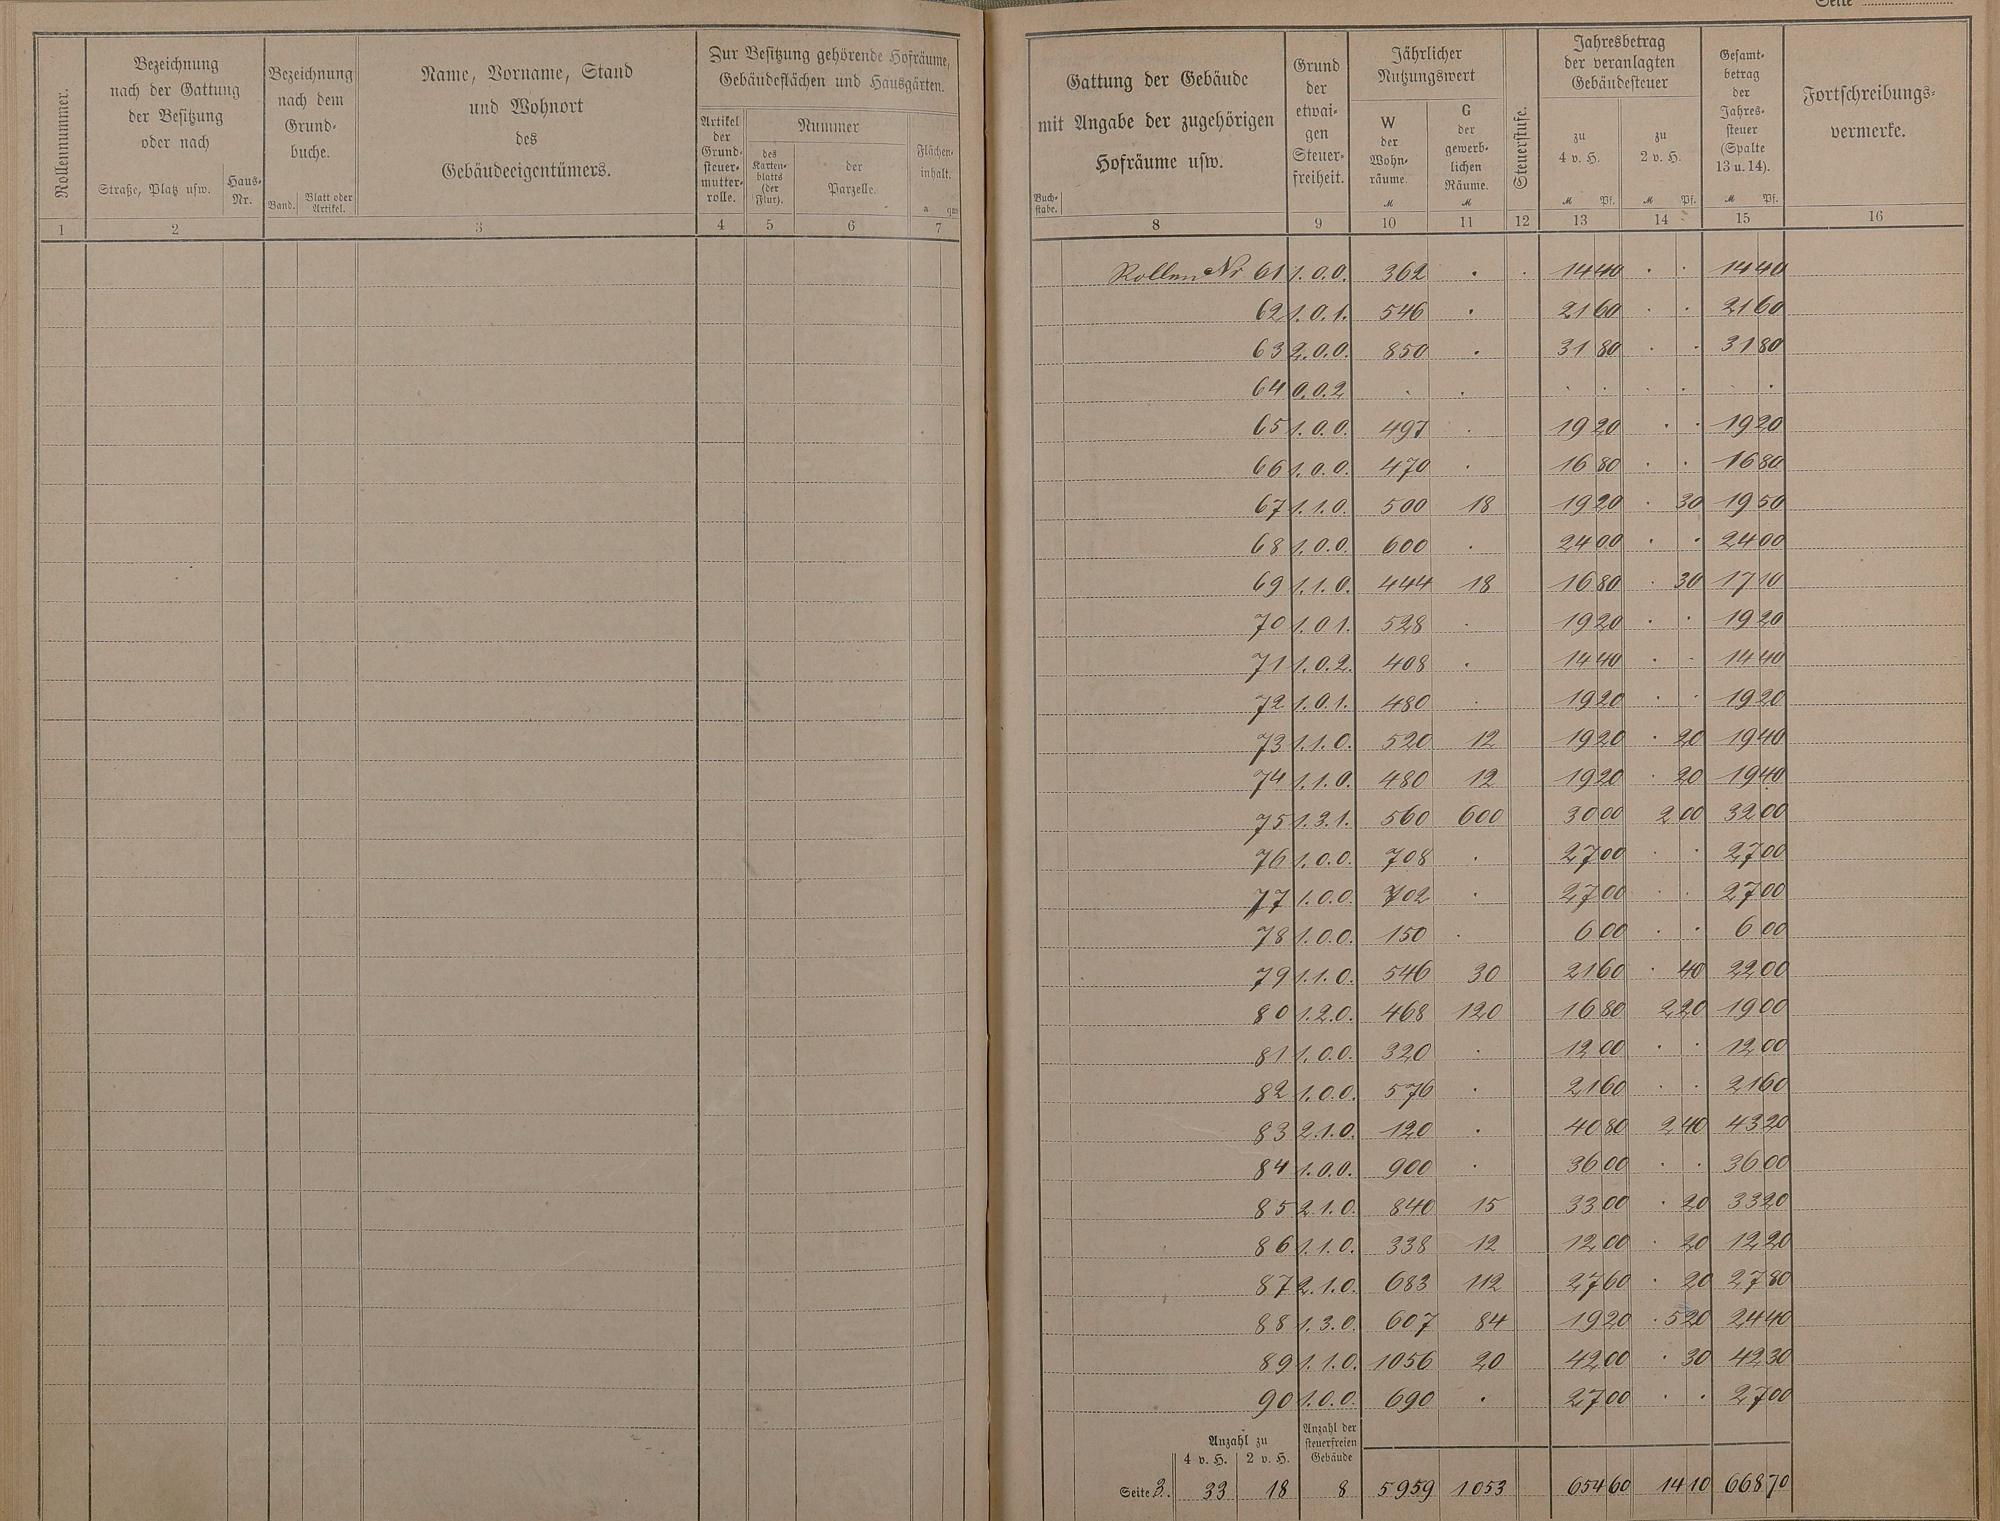 Seite
Rollennummer.
Bezeichnung
nach der Gattung
der Besitzung
oder nach
Straße, Platz usw.
Haus-
Nr.
Bezeichnung
nach dem
Grund-
buche.
Band.
Blatt oder
Artikel.
Name, Vorname, Stand
und Wohnort
des
Gebäudeeigentümers.
Zur Besitzung gehörende Hofräume,
Gebäudeflächen und Hausgärten.
Artikel
der
Grund-
steuer-
mutter-
rolle.
Nummer
des
Karten-
blatts
(der
Flur).
der
Parzelle.
Flächen-
inhalt.
a qm
1 2 3 4 5 6 7
Buch-
stabe.
Gattung der Gebäude
mit Angabe der zugehörigen
Hofräume usw.
Grund
der
etwai-
gen
Steuer-
freiheit.
Jährlicher
Nutzungswert
W
der
Wohn-
räume.
M
G
der
gewerb-
lichen
Räume.
M
Steuerstufe.
Jahresbetrag
der veranlagten
Gebäudesteuer
zu
4 v. H.
M Pf.
zu
2 v. H.
M Pf.
Gesamt-
betrag
der
Jahres-
steuer
(Spalte
13 u. 14).
M Pf.
Fortschreibungs-
vermerke.
8 9 10 11 12 13 14 15 16
Rollen Nr 61 1.0.0. 362 . . 14 40 . . 14 40
62 1.0.1. 546 . 21 60 . . 21 60
63 2.0.0. 850 . 31 80 . . 31 80
64 0.0.2 . . . . . . .
65 1.0.0. 497 . 19 20 . . 19 20
66 1.0.0. 470 . 16 80 . . 16 80
67 1.1.0. 500 18 19 20 . 30 19 50
68 1.0.0. 600 . 24 00 . . 24 00
69 1.1.0. 444 18 16 80 . 30 17 10
70 1.0.1. 528 . 19 20 . . 19 20
71 1.0.2. 408 . 14 40 . . 14 40
72 1.0.1. 480 . 19 20 . . 19 20
73 1.1.0. 520 12 19 20 . 20 19 40
74 1.1.0. 480 12 19 20 . 20 19 40
75 1.3.1. 560 600 30 00 2 00 32 00
76 1.0.0. 708 . 27 00 . . 27 00
77 1.0.0. 702 . 27 00 . . 27 00
78 1.0.0. 150 . 6 00 . . 6 00
79 1.1.0. 546 30 21 60 . 40 22 00
80 1.2.0. 468 120 16 80 2 20 19 00
81 1.0.0. 320 . 12 00 . . 12 00
82 1.0.0. 576 . 21 60 . . 21 60
83 2.1.0. 120 . 40 80 2 40 43 20
84 1.0.0. 900 . 36 00 . . 36 00
85 2.1.0. 840 15 33 00 . 20 33 20
86 1.1.0. 338 12 12 00 . 20 12 20
87 2.1.0. 683 112 27 60 . 20 27 80
88 1.3.0. 607 84 19 20 . 5 20 24 40
89 1.1.0. 1056 20 42 00 . 30 42 30
90 1.0.0. 690 . 27 00 . . 27 00
Anzahl zu
4 v. H. 2 v. H.
Anzahl der
steuerfreien
Gebäude
Seite 3. 33 18 8 5959 1053 654 60 14 10 668 70